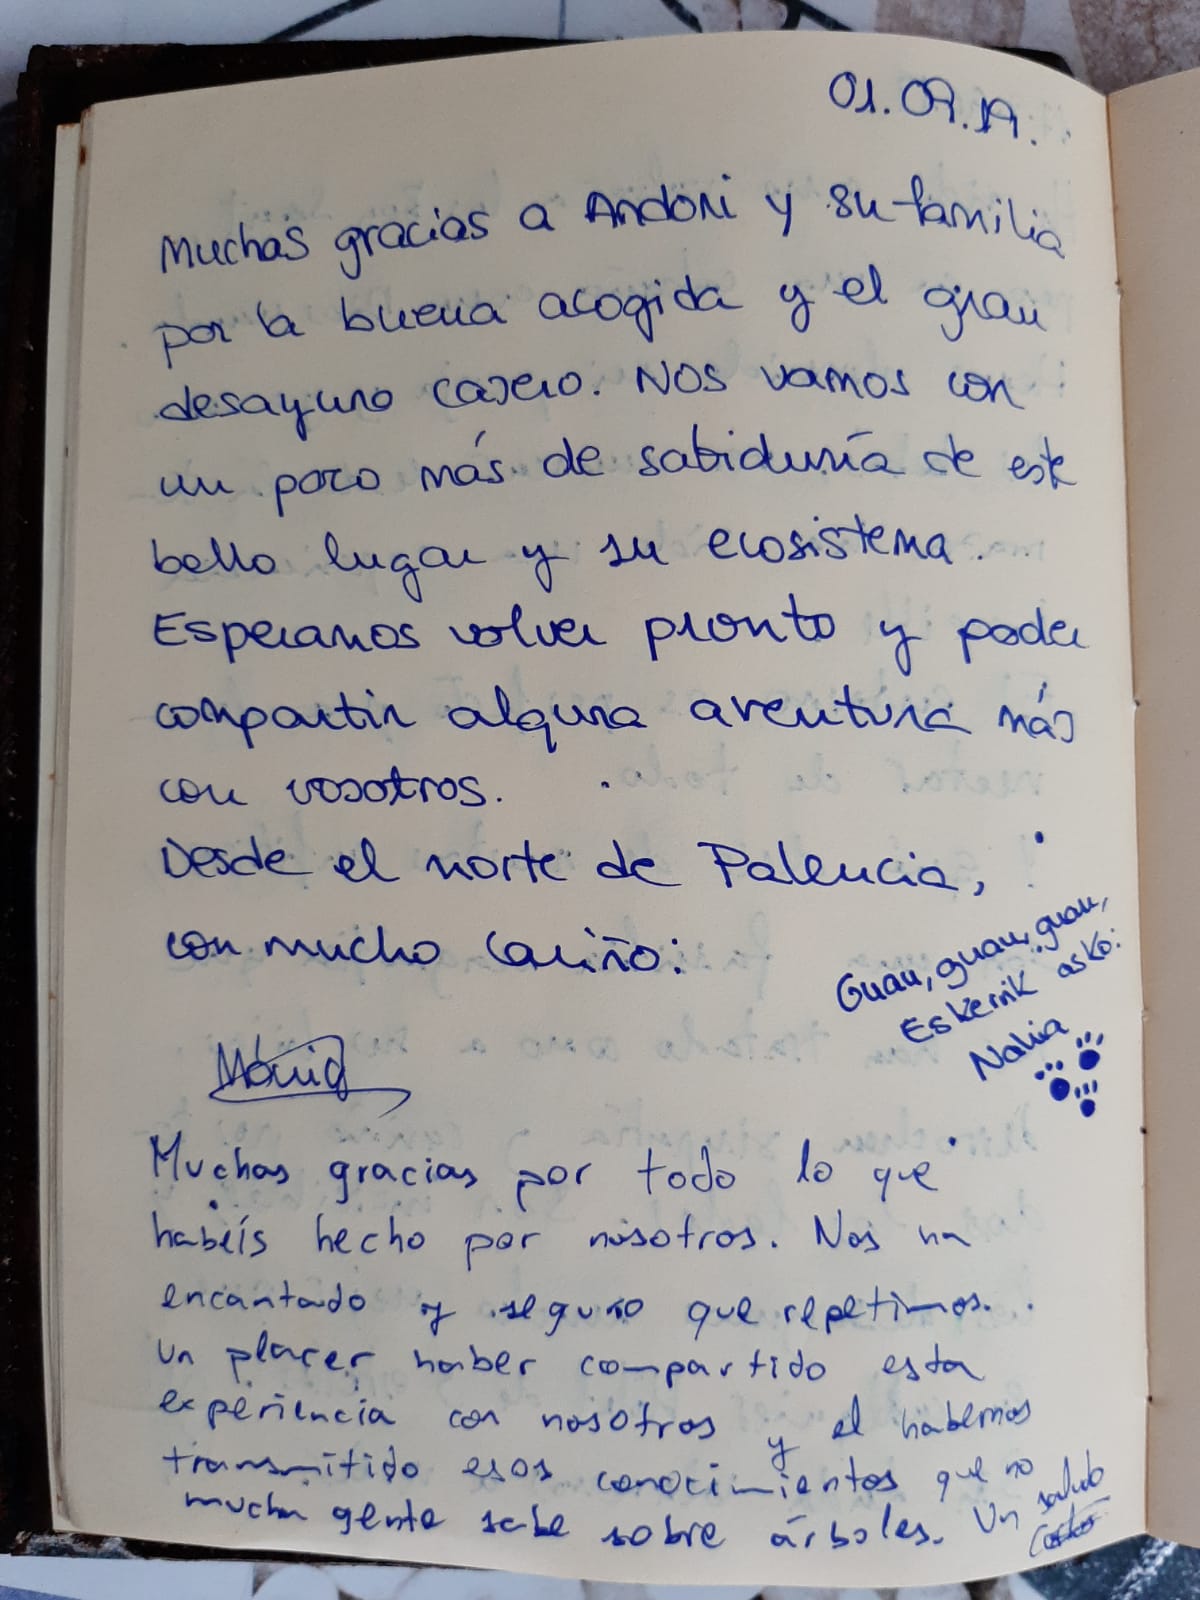 01.09.19.
Muchas gracias a Andoni y su familia
por la buena acogida y el gran
desayuno casero. Nos vamos con
un poco más de sabiduría de este
bello lugar y su ecosistema.
Esperamos volver pronto y poder
compartir alguna aventura más
con vosotros.
Desde el norte de Palencia,
con mucho cariño:
Guau, guau, guau,
Eskerrik asko:
Nahia
Mónica
Muchas gracias por todo lo que
habéis hecho por nosotros. Nos ha
encantado y seguro que repetimos.
Un placer haber compartido esta
experiencia con nosotros y el habernos
transmitido esos conocimientos que no
mucha gente sabe sobre árboles. Un saludo